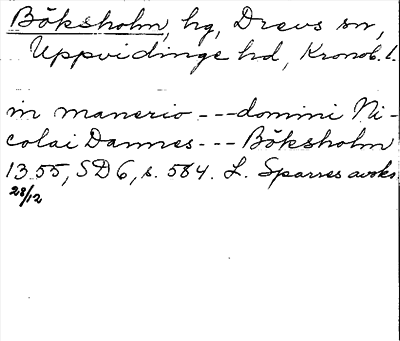 Böksholm, hg, Drevs sn,
Uppvidinge hd, Kronob. l.
in manerio --- domini Ni-
colai Dannes --- Böksholm
1355, SD 6, s. 584. L. Sparres avskr.
28/12